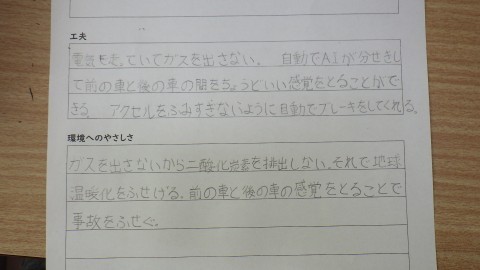 工夫
電気で走っていてガスを出さない。 自動でAIが分せきし
て前の車と後の車の間をちょうどいい感覚をとることがで
きる。 アクセルをふみすぎないように自動でブレーキをしてくれる。
環境へのやさしさ
ガスを出さないから二酸化炭素を排出しない。それで地球
温暖化をふせげる。前の車と後の車の感覚をとることで
事故をふせぐ。